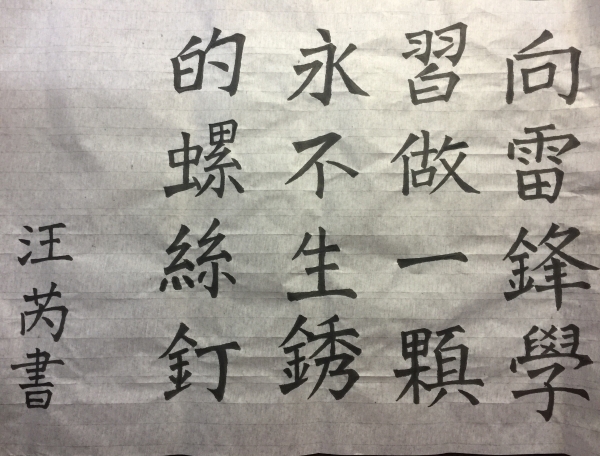 向雷鋒學
習做一顆
永不生銹
的螺絲釘
汪芮書